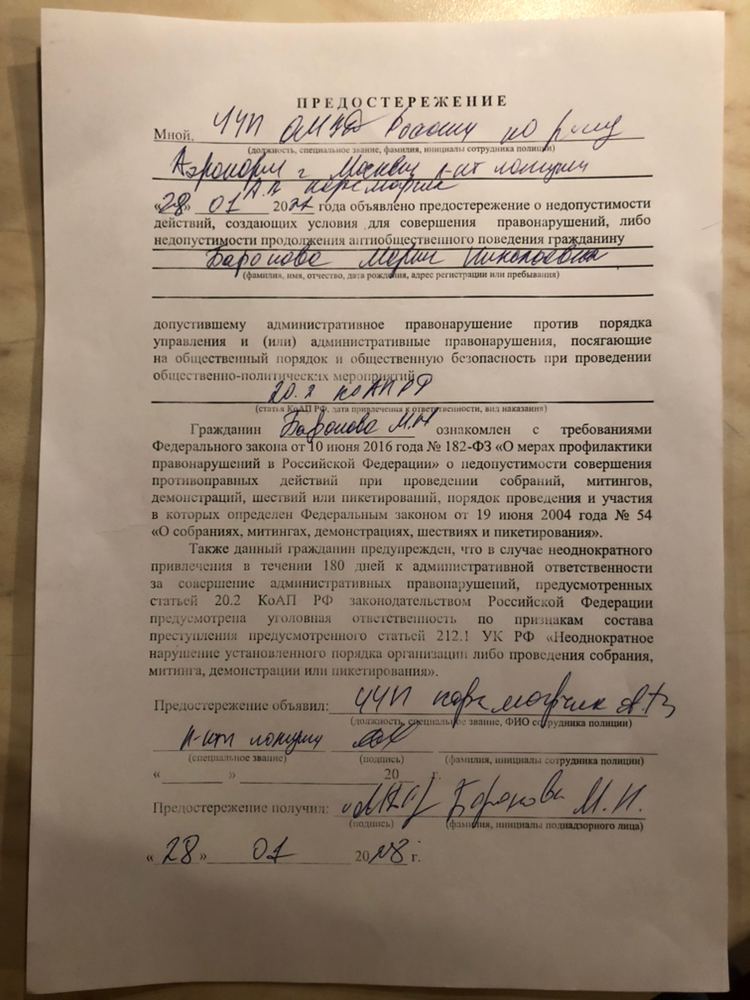 ПРЕДОСТЕРЕЖЕНИЕ
Мной, УУП ОМВД России по р-ну
(должность, специальное звание, фамилия, инициалы сотрудника полиции)
Аэропорт г. Москвы л-нт полиции
«28» 01 20 года объявлено предостережение о недопустимости
действий, создающих условия для совершения правонарушений, либо
недопустимости продолжения антиобщественного поведения гражданину
Баронова Мария Николаевна
(фамилия, имя, отчество, дата рождения, адрес регистрации или пребывания)
допустившему административное правонарушение против порядка
управления и (или) административные правонарушения, посягающие
на общественный порядок и общественную безопасность при проведении
общественно-политических мероприятий
20.2 КоАП РФ
(статья КоАП РФ, дата привлечения к ответственности, вид наказания)
Гражданин Баронова М.Н ознакомлен с требованиями
Федерального закона от 10 июня 2016 года № 182-ФЗ «О мерах профилактики
правонарушений в Российской Федерации» о недопустимости совершения
противоправных действий при проведении собраний, митингов,
демонстраций, шествий или пикетирований, порядок проведения и участия
в которых определен Федеральным законом от 19 июня 2004 года № 54
«О собраниях, митингах, демонстрациях, шествиях и пикетирования».
Также данный гражданин предупрежден, что в случае неоднократного
привлечения в течении 180 дней к административной ответственности
за совершение административных правонарушений, предусмотренных
статьей 20.2 КоАП РФ законодательством Российской Федерации
предусмотрена уголовная ответственность по признакам состава
преступления предусмотренного статьей 212.1 УК РФ «Неоднократное
нарушение установленного порядка организации либо проведения собрания,
митинга, демонстрации или пикетирования».
Предостережение объявил: УУП
(должность, специальное звание, ФИО сотрудника полиции)
л-нт полиции
(специальное звание) (подпись) (фамилия, инициалы сотрудника полиции)
« » 20 г.
Предостережение получил: Баронова М.Н.
(подпись) (фамилия, инициалы поднадзорного лица)
«28» 01 2018 г.